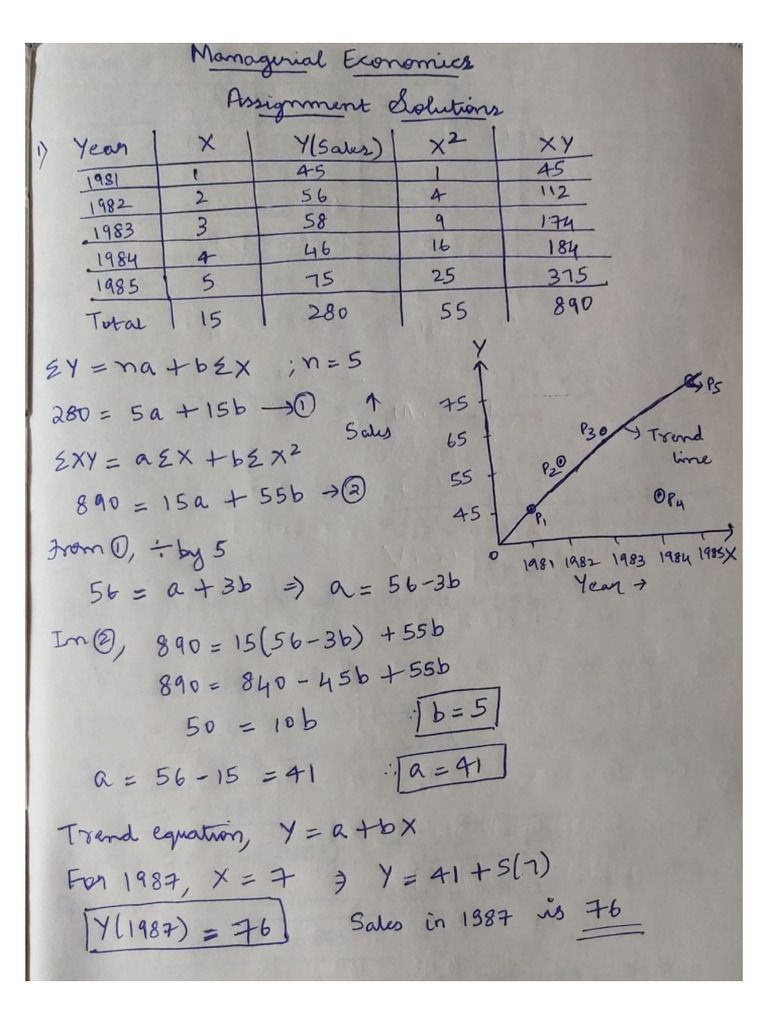 Managerial Economics
Assignment Solutions
1) Year X Y(Sales) X² XY
1981 1 45 1 45
1982 2 56 4 112
1983 3 58 9 174
1984 4 46 16 184
1985 5 75 25 375
Total 15 280 55 890
ΣY = na + bΣX ; n = 5
280 = 5a + 15b → ①
ΣXY = aΣX + bΣX²
890 = 15a + 55b → ②
From ①, ÷ by 5
56 = a + 3b ⇒ a = 56-3b
In ②, 890 = 15(56-3b) + 55b
890 = 840 - 45b + 55b
50 = 10b ∴ b = 5
a = 56 - 15 = 41 ∴ a = 41
Y
↑
Sales
75
65
55
45
0
P1
P2
P3
P4
P5
→ Trend
line
1981 1982 1983 1984 1985 X
Year →
Trend equation, Y = a + bX
For 1987, X = 7 ⇒ Y = 41 + 5(7)
Y(1987) = 76 Sales in 1987 is 76